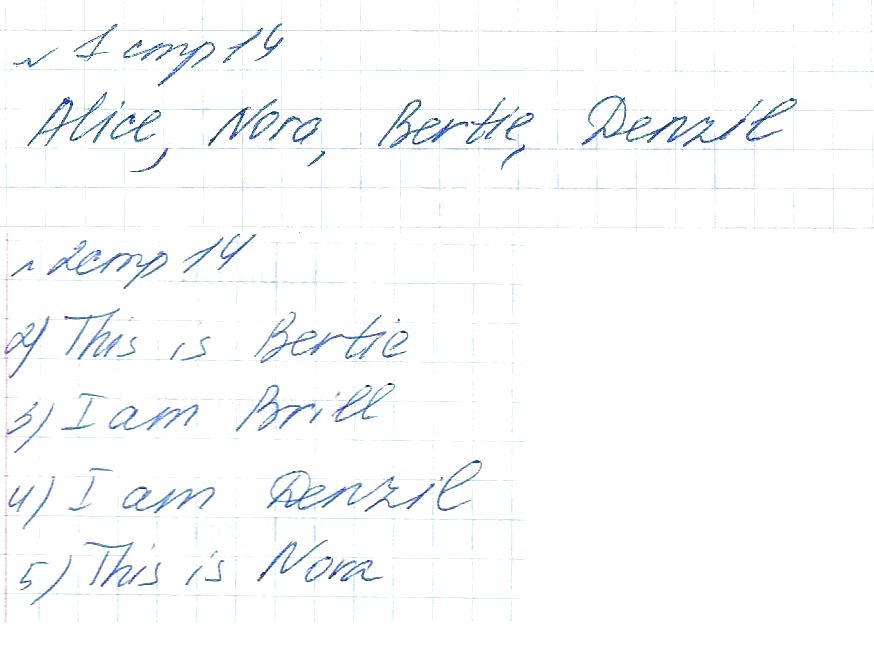 № 1 стр 14
Alice, Nora, Bertie, Denzil
№ 2 стр 14
2) This is Bertie
3) I am Brill
4) I am Denzil
5) This is Nora